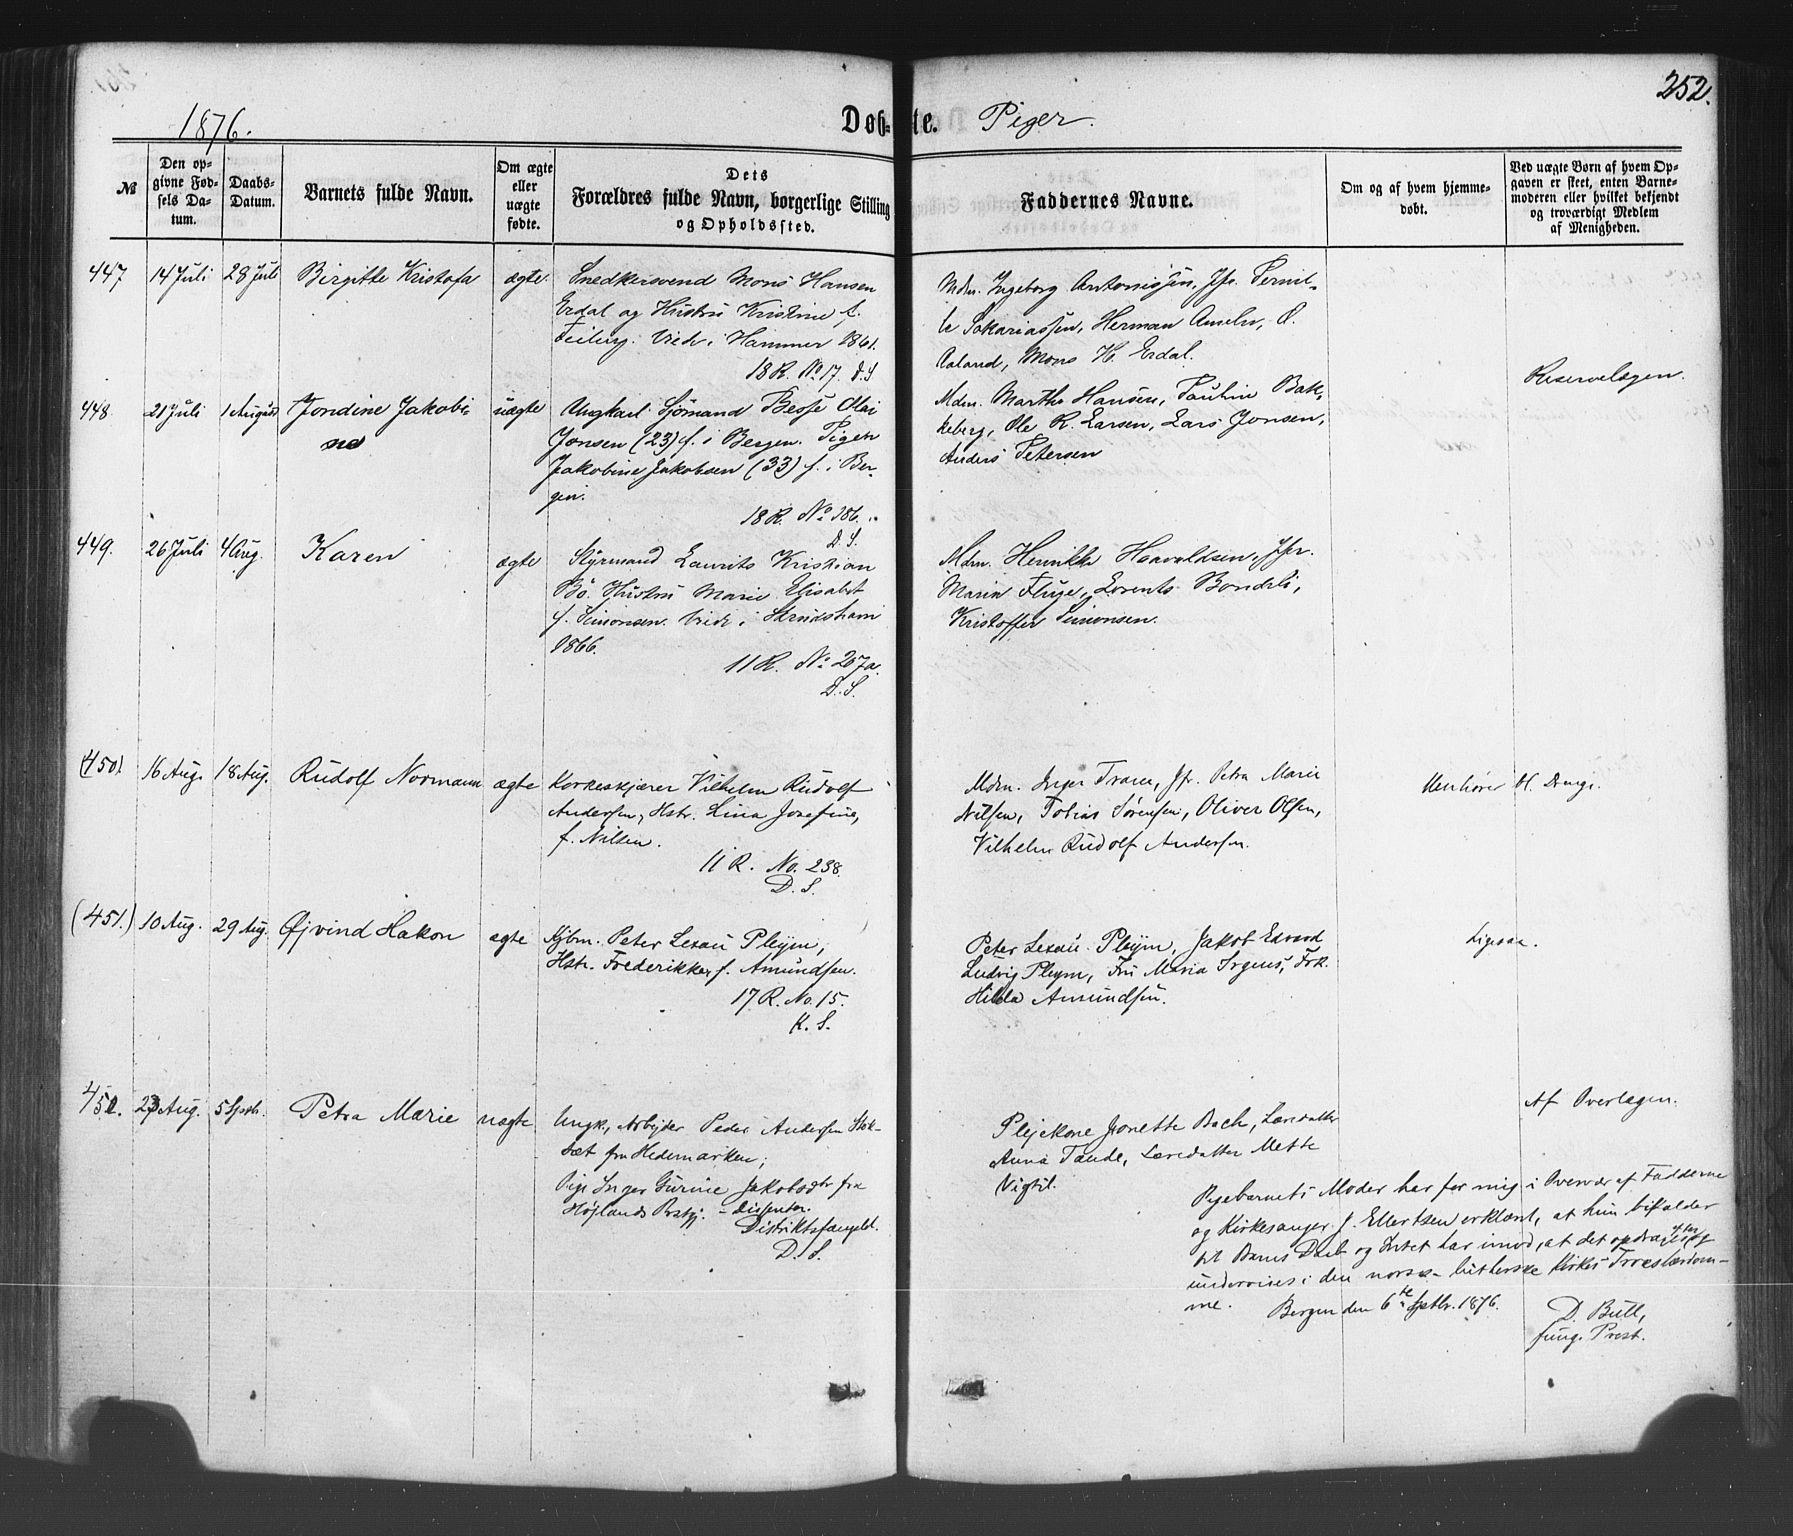 252.
1876.
Døb-te. Piger.
№
Den op-
givne Fød-
sels Da-
tum.
Daabs-
Datum.
Barnets fulde Navn.
Om ægte
eller
uægte
fødte.
Dets
Forældres fulde Navn, borgerlige Stilling
og Opholdssted.
Faddernes Navne.
Om og af hvem hjemme-
døbt.
Ved uægte Børn af hvem Op-
gaven er skeet, enten Barne-
moderen eller hvilket bekjendt
og troværdigt Medlem
af Menigheden.
447 14 Juli 28 Juli Birgitte Kristofa ægte.
Snedkersvend Mons Hansen
Erdal og Hustru Kristine f.
Viede i Hammer 1861.
18 R. No 17. D.S
Mdm. Ingeborg Antonissen, Jfr. Pernil-
le Sakariassen, Herman Ameln, O.
Aaland, Mons H. Erdal.
448. 21 Juli 1 August Jondine Jakobi-
ne
uægte
Ungkarl Sjømand Besse Olai
Jonsen (23) f. i Bergen. Pigen
Jakobine Jakobsen (33) f. i Ber-
gen.
18 R. No 186.
D. S.
Mdm. Marthe Hansen, Pauline Bak-
keberg, Ole R. Larsen, Lars Jonsen,
Anders Petersen
Reservelægen.
449. 26 Juli 4 Aug. Karen ægte
Styrmand Laurits Kristian
Bø. Hustru Marie Elisabet
f. Simonsen. Viede i
1866.
11 R. No 267a.
D. S.
Mdm. Henrikke Haavaldsen, Jfr.
Maria Fluge, Lorents Bondeli,
Kristoffer Simonsen.
(450). 16 Aug. 18 Aug. Rudolf Normann ægte
Korkeskjærer Vilhelm Rudolf
Andersen, Hstr. Lina Josefine,
f. Nilsen.
11 R. No. 238.
D. S.
Mdm. Inger Trane, Jfr. Petra Marie
Nilsen, Tobias Sørensen, Oliver Olsen,
Vilhelm Rudolf Andersen.
Henhører t. Drenge.
(451.) 10 Aug. 29 Aug. Øjvind Hakon ægte
Kjbm. Peter Lexau Pleym,
Hstr. Frederikke, f. Amundsen.
17 R. No. 15.
K. S.
Peter Lexau Pleym, Jakob Edvard
Ludvig Pleym, Fru Maria Irgens, Frk.
Hilda Amundsen.
Ligesaa.
452. 23 Aug. 5 Septb. Petra Marie uægte
Ungk., Arbejder Peder Andersen Stok-
sæt fra Hedemarken;
Pige Inger Gurine Jakobsdtr fra
Højlands Prstgj. – Dissenter.
Distriktsfængslet.
D. S.
Plejekone Jonette Bach, Læredatter
Anna Tande, Læredatter Mette
Vigtil.
Af Overlægen.
Pigebarnets Moder har for mig i Overvær af Fadderne
og Kirkesanger J. Ellertsen erklæret, at hun bifalder
sit Barns Daab og Intet har imod, at det opdrages og
undervises i den norsk-lutherske Kirkes Troeslærdom-
me. Bergen den 6te Septbr. 1876.
D. Bull,
fung. Prest.